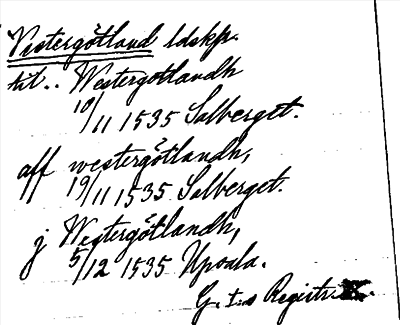 Vestergötland ldskp.
till.. Westergotlandh
19/11 1535 Salberget.
aff westergötlandh,
19/11 1535 Salberget.
j Westergötlandh,
5/12 1535 Upsala.
G. I:s Registr.